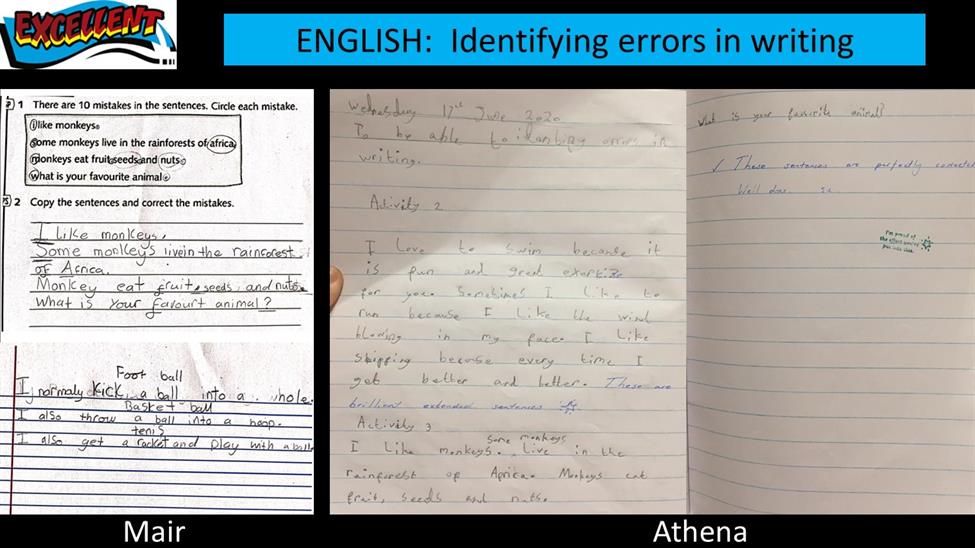 EXCELLENT
ENGLISH: Identifying errors in writing
1 There are 10 mistakes in the sentences. Circle each mistake.
i like monkeys
some monkeys live in the rainforests of africa
monkeys eat fruit seeds and nuts
what is your favourite animal
2 Copy the sentences and correct the mistakes.
I Like monkeys.
Some monkeys livein the rainforest
of Africa.
Monkey eat fruit, seeds, and nuts.
What is Your favourt animal?
Foot ball
I normaly kick a ball into a whole.
Basket ball
I also throw a ball into a hoop.
tenis
I also get a racket and play with a ball
Mair
Wednesday 17th June 2020
To be able to identify errors in
writing.
Activity 2
I Love to swim because it
is fun and great
for you. Sometimes I Like to
run because I Like the wind
blowing in my face. I Like
skipping because every time I
get better and better. These are
brilliant extended sentences
Activity 3
some monkeys
I Like monkeys. Live in the
rainforest of Africa. Monkeys eat
fruit, seeds and nuts.
What is your favourite animal?
These sentences are perfectly corrected
Well done.
I'm proud of
the effort you've
put into this.
Athena